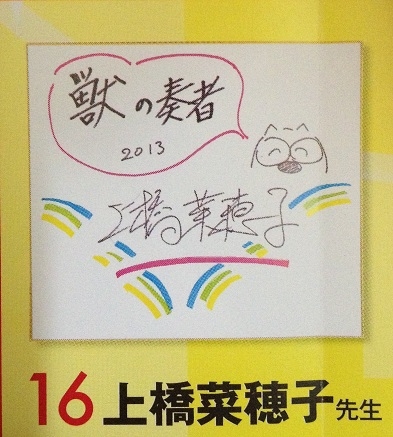 獣の奏者
2013
上橋菜穂子
16 上橋菜穂子先生